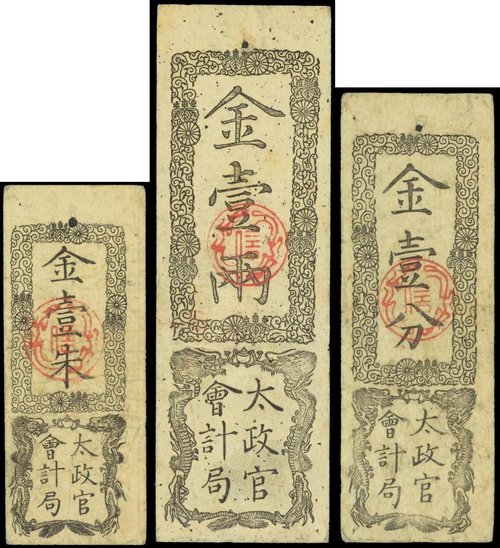 金壹朱
太政官
會計局
金壹兩
太政官
會計局
金壹分
太政官
會計局